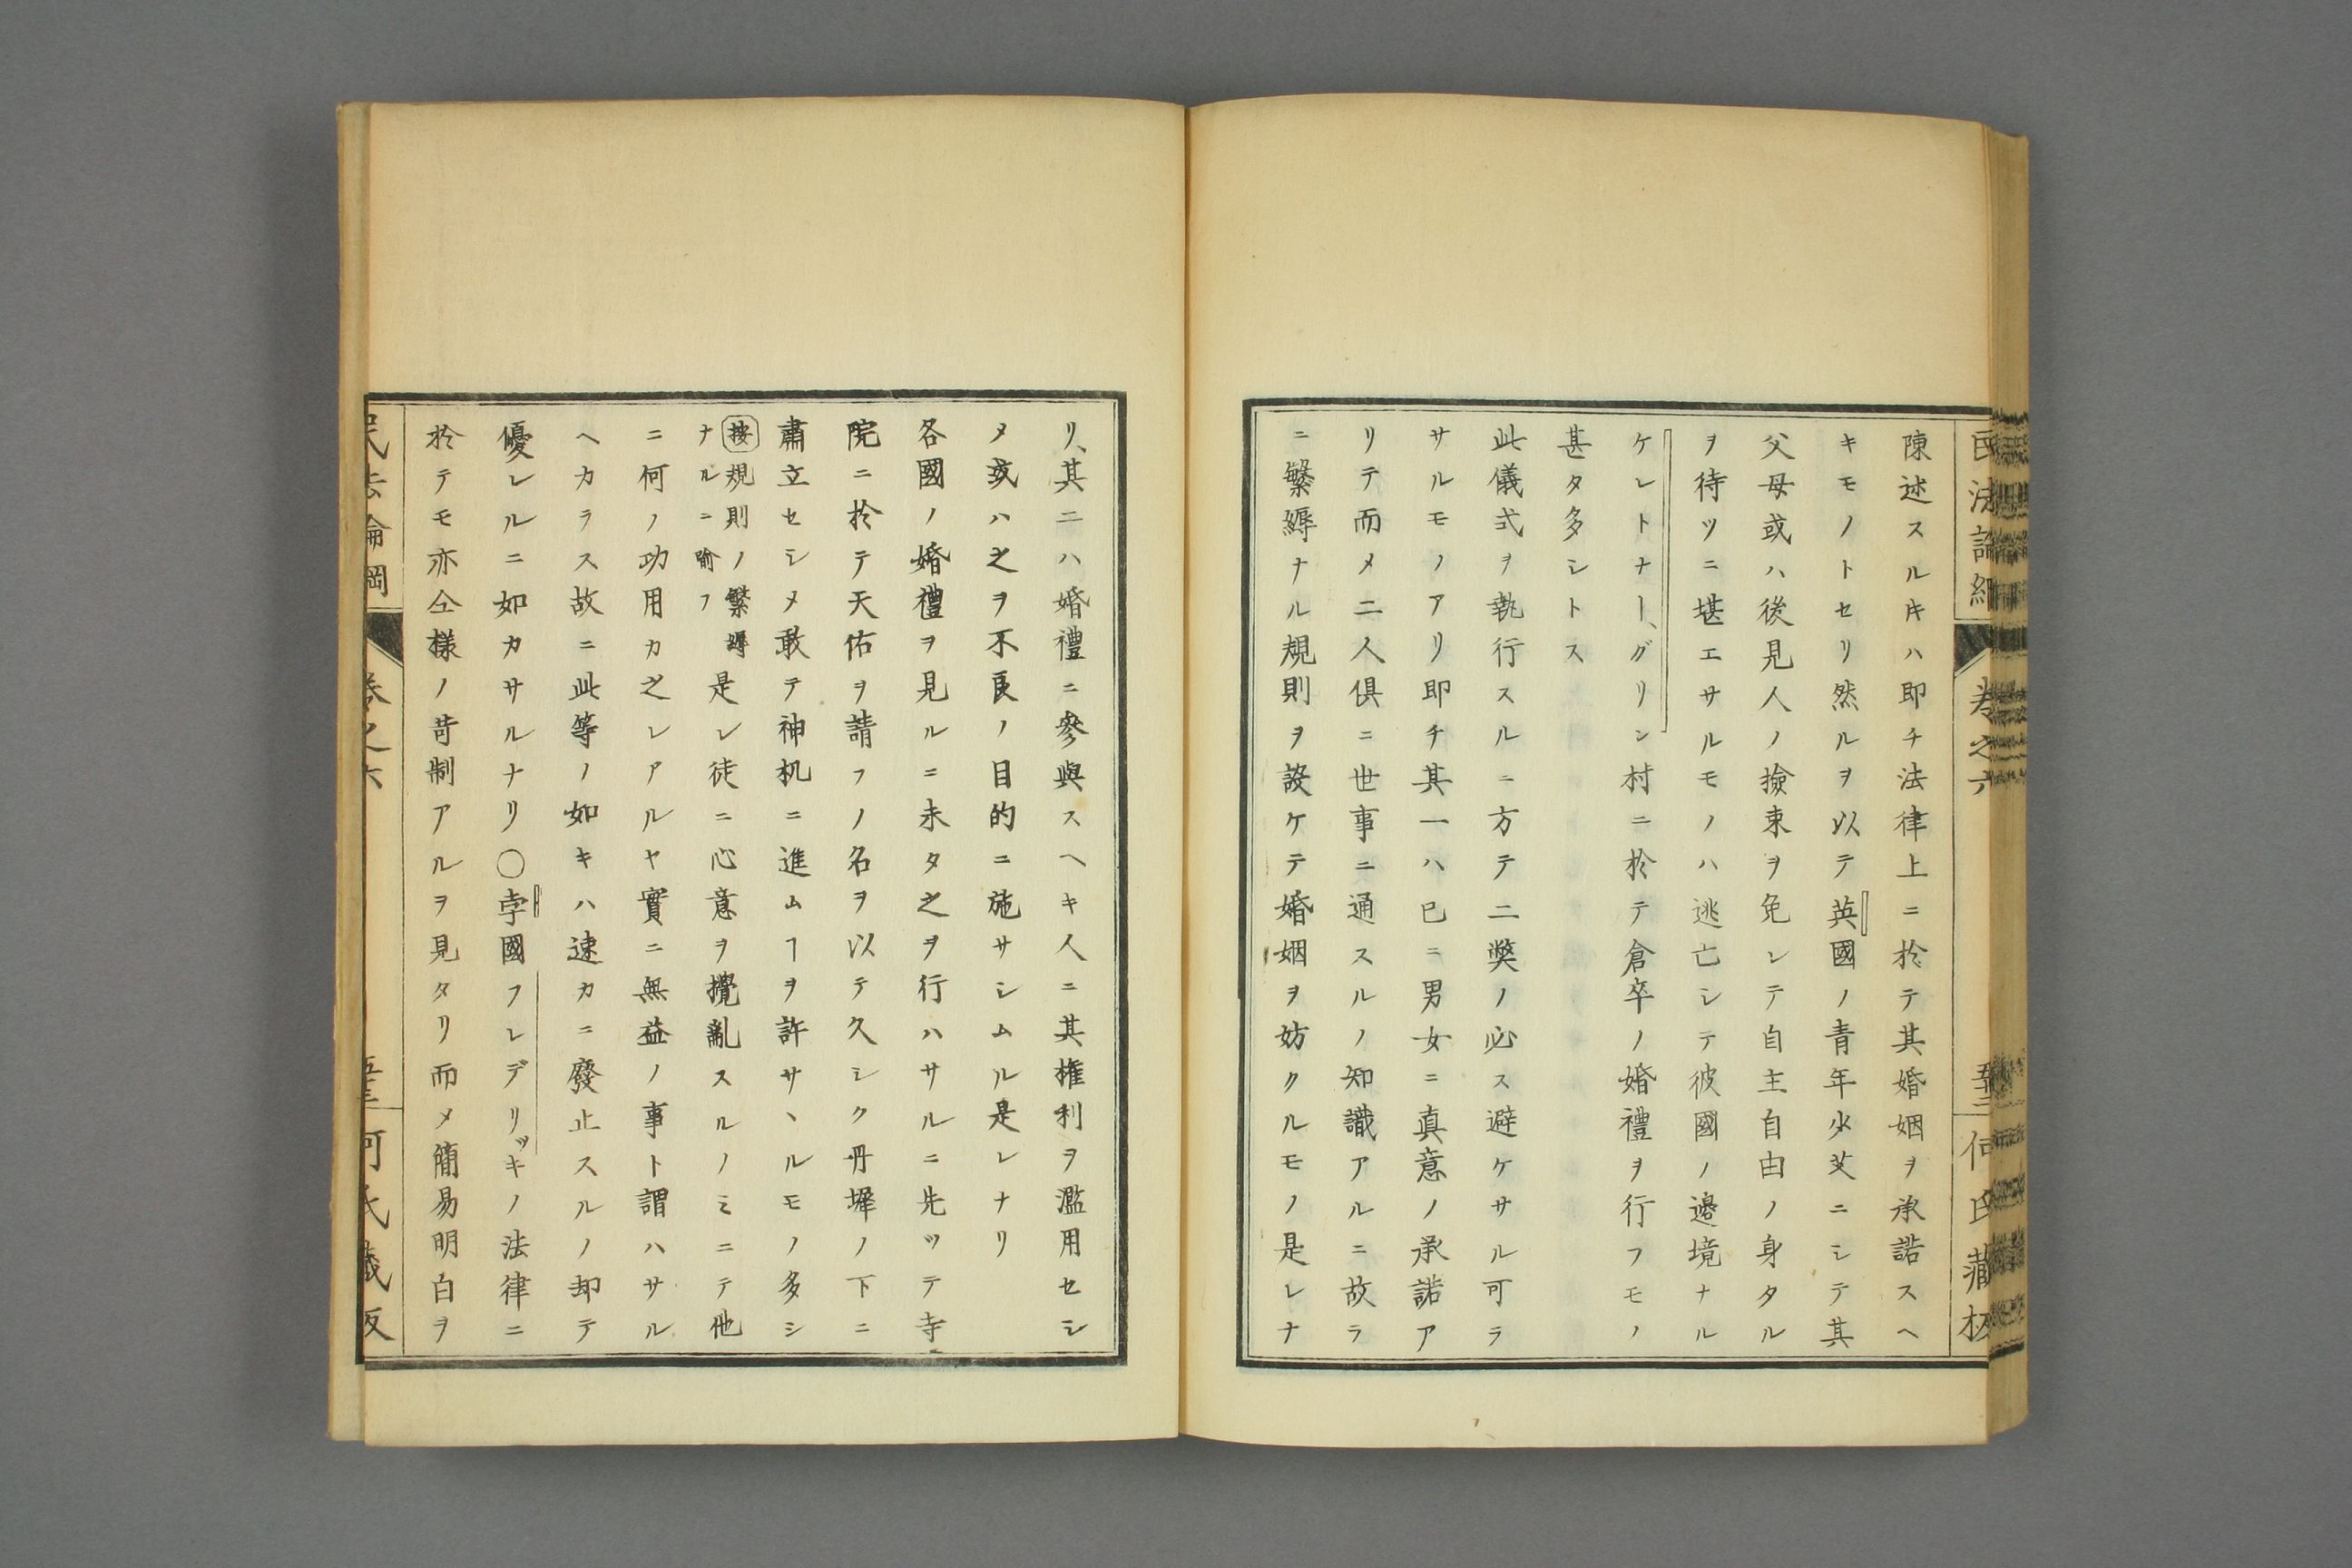 民法論綱
卷之六
何氏藏板
陳述スルキハ即チ法律上ニ於テ其婚姻ヲ承諾スヘ
キモノトセリ然ルヲ以テ英國ノ青年少艾ニシテ其
父母或ハ後見人ノ撿束ヲ免レテ自主自由ノ身タル
ヲ待ツニ堪エサルモノハ逃亡シテ彼國ノ邊境ナル
ケレトナーグリン村ニ於テ倉卒ノ婚禮ヲ行フモノ
甚タ多シトス
此儀式ヲ執行スルニ方テ二獘ノ必ス避ケサル可ラ
サルモノアリ即チ其一ハ已ニ男女ニ真意ノ承諾ア
リテ而メ二人俱ニ世事ニ通スルノ知識アルニ故ラ
ニ繁縟ナル規則ヲ設ケテ婚姻ヲ妨クルモノ是レナ
リ、其二ハ婚禮ニ參與スヘキ人ニ其権利ヲ濫用セシ
メ或ハ之ヲ不良ノ目的ニ施サシムル是レナリ
各國ノ婚禮ヲ見ルニ未タ之ヲ行ハサルニ先ツテ寺
院ニ於テ天佑ヲ請フノ名ヲ以テ久シク丹墀ノ下ニ
肅立セシメ敢テ神机ニ進ムヿヲ許サヽルモノ多シ
按規則ノ繁縟
ナルニ喩フ
是レ徒ニ心意ヲ攪亂スルノミニテ他
ニ何ノ功用カ之レアルヤ實ニ無益ノ事ト謂ハサル
ヘカラス故ニ此等ノ如キハ速カニ廢止スルノ却テ
優レルニ如カサルナリ〇孛國フレデリッキノ法律ニ
於テモ亦仝樣ノ苛制アルヲ見タリ而メ簡易明白ヲ
民法論綱
卷之六
何氏藏板